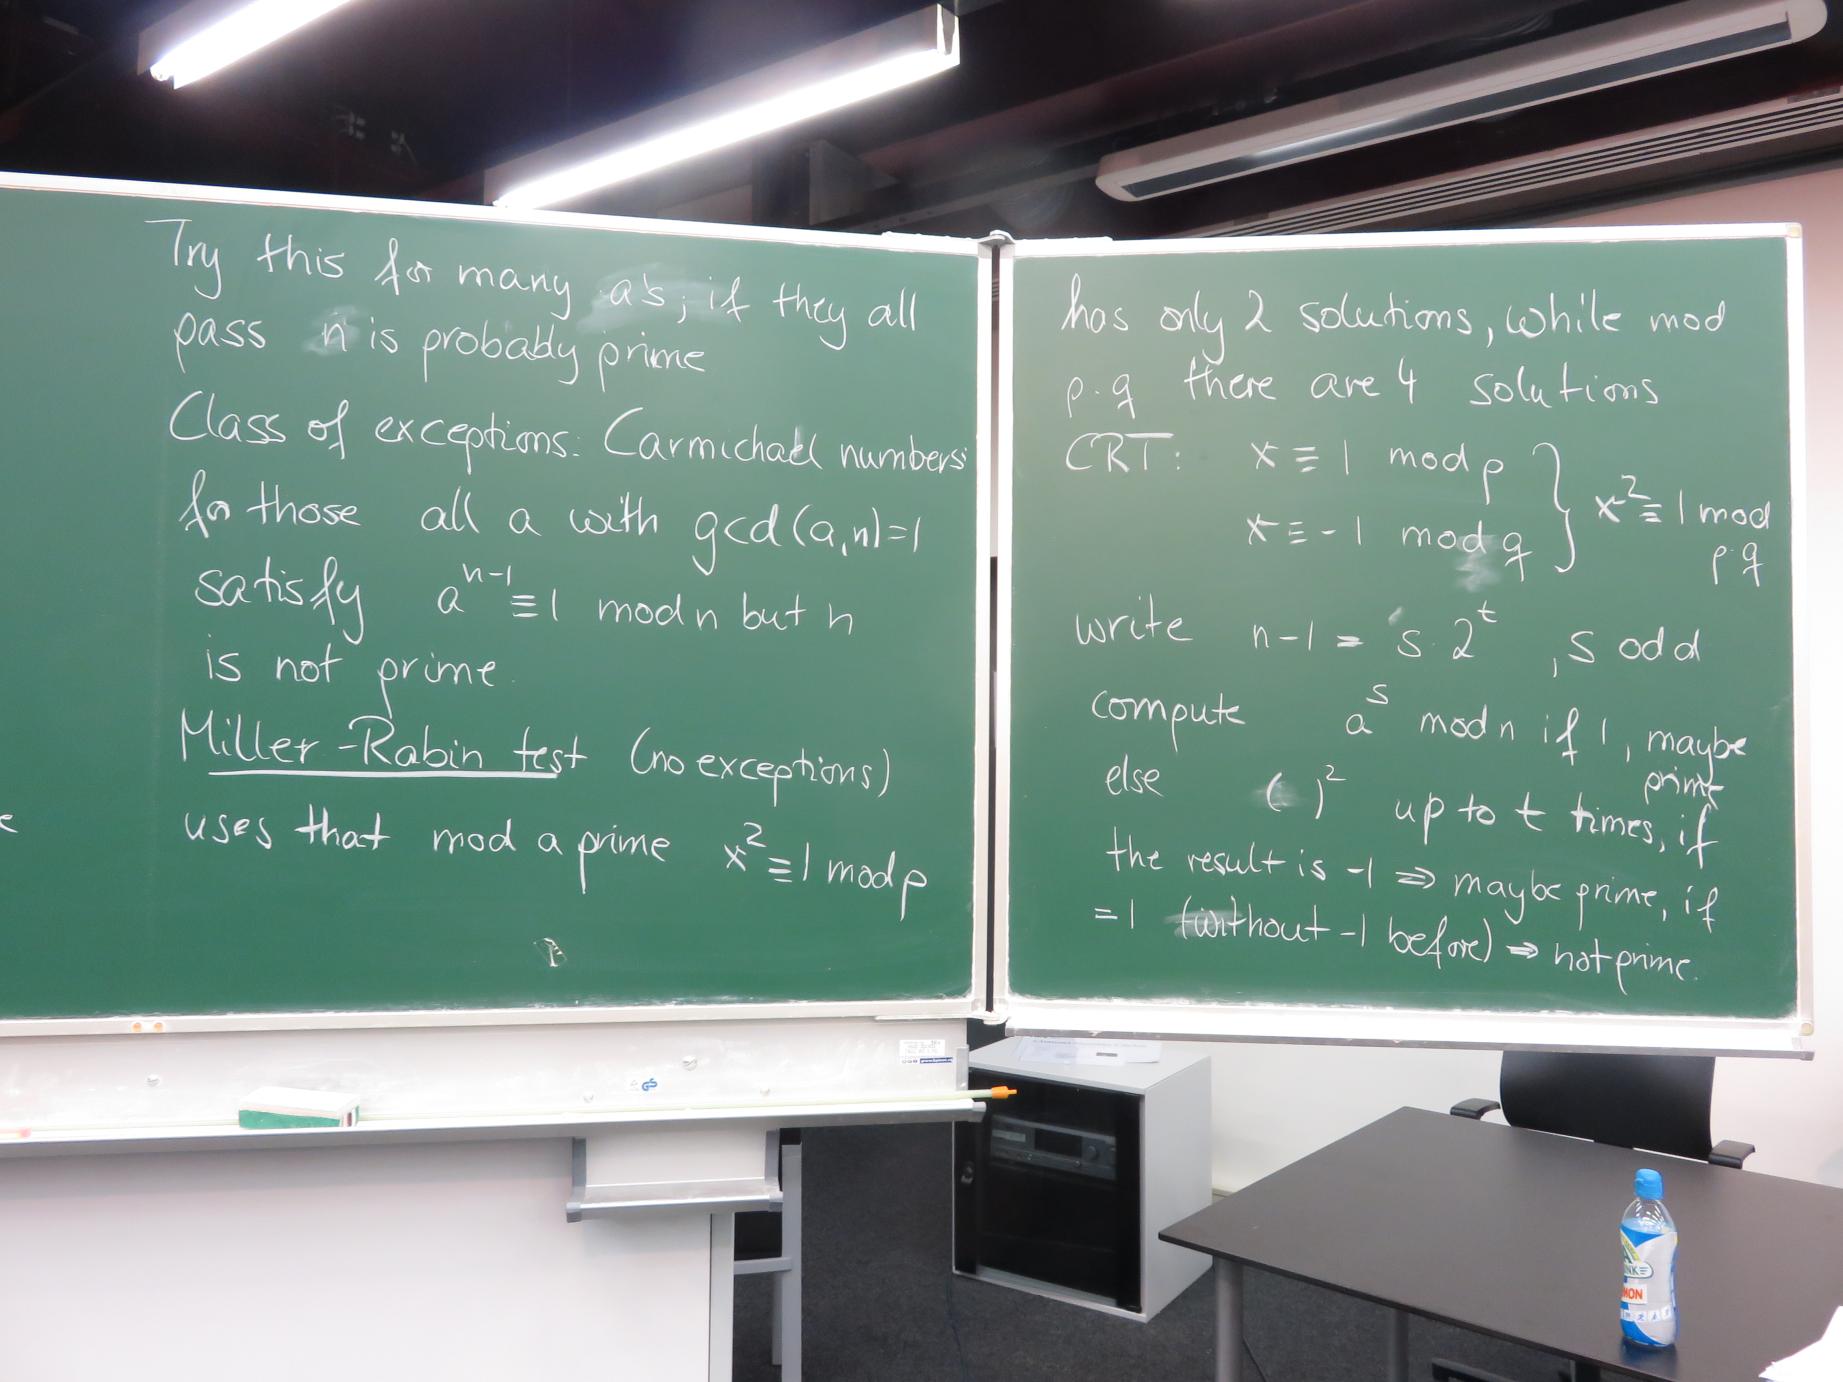 Try this for many a's; if they all
pass n is probably prime
Class of exceptions: Carmichael numbers
for those all a with gcd(a,n)=1
satisfy a^{n-1} ≡ 1 mod n but n
is not prime.
Miller-Rabin test (no exceptions)
uses that mod a prime x² ≡ 1 mod p
has only 2 solutions, while mod
p·q there are 4 solutions
CRT: x ≡ 1 mod p
x ≡ -1 mod q } x² ≡ 1 mod
p·q
write n-1 = s·2^t , s odd
compute a^s mod n if 1, maybe
prime
else ( )² up to t times, if
the result is -1 ⇒ maybe prime, if
=1 (without -1 before) ⇒ not prime.